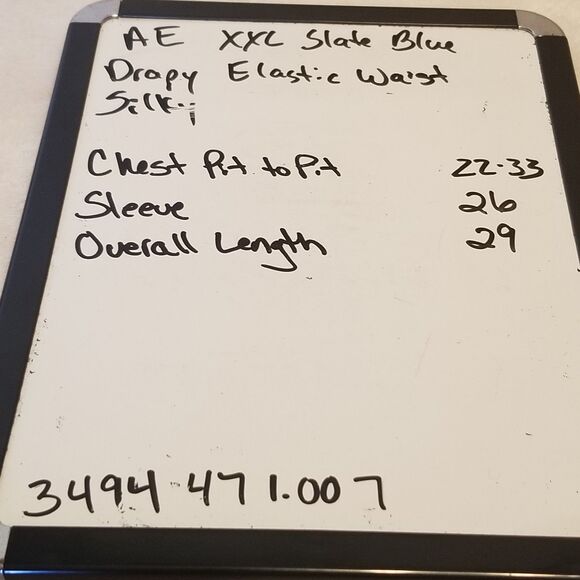 AE XXL Slate Blue
Drapy Elastic Waist
Silky
Chest Pit to Pit 22-33
Sleeve 26
Overall Length 29
3494 47 1.007